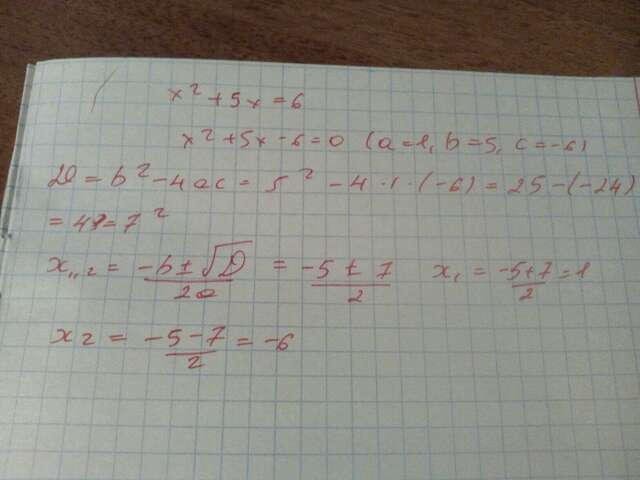 x² + 5x = 6
x² + 5x - 6 = 0 (a = 1, b = 5, c = -6)
D = b² - 4ac = 5² - 4 · 1 · (-6) = 25 - (-24)
= 49 = 7²
x₁,₂ = (-b ± √D)/(2a) = (-5 ± 7)/2 x₁ = (-5+7)/2 = 1
x₂ = (-5-7)/2 = -6